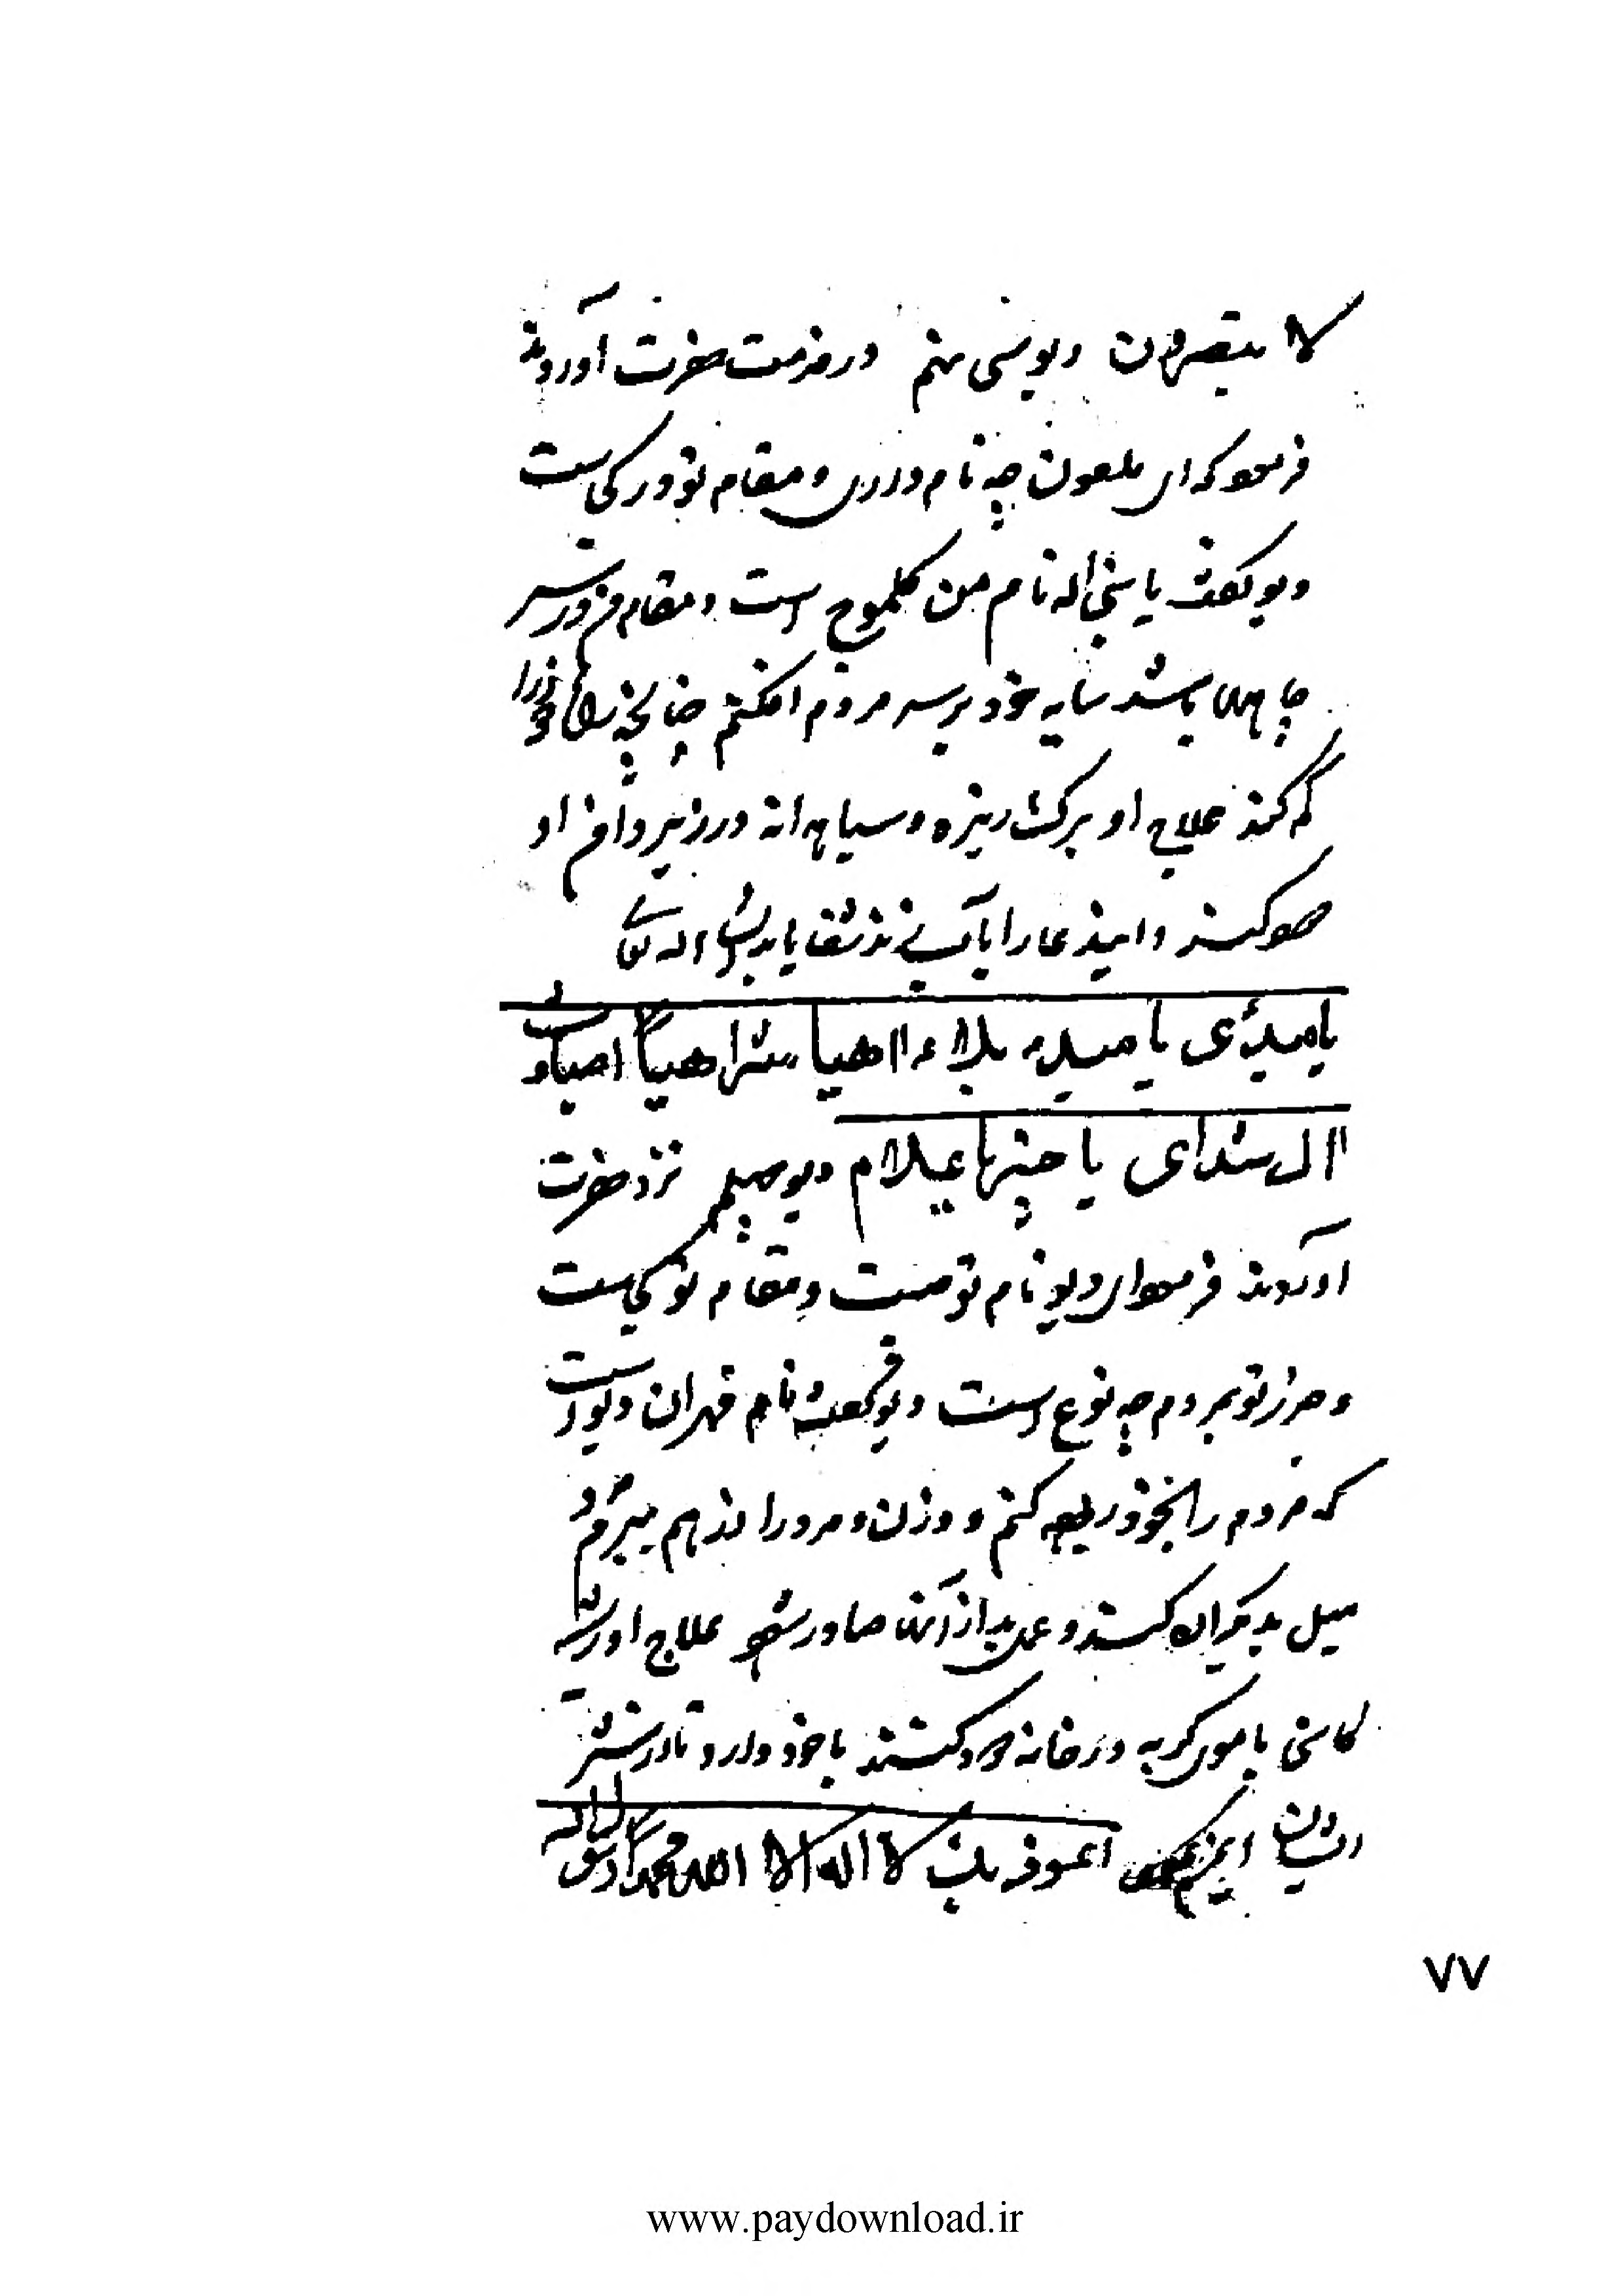 لا یبصرون دیو سی نهم در خدمت حضرت آوردند
فرمود که ای ملعون چه نام داری و مقام تو در کجاست
دیو گفت یا نبی اله نام من کلموج است و مقام من در سر
چاهها باشد سایه خود بر سر مردم افکنم چنانچه
که کند علاج او برک ریزه و سیاه دانه در زیر دامن او
دود کنند و این دعا را با
یا یا اهیا شراهیا اصباوث
ال شدای یا دیو چهلم نزد حضرت
آوردند فرمود ای دیو نام تو چیست و مقام تو کجاست
و ضرر تو بمردم چه نوع است دیو گفت نام قهران دیو است
که مردم را بخود کنم و زن و مرد را
میل بدیگران کنند و عمل بد از آنها صادر شود علاج او ریشه
کاسنی با موی گربه در خانه دود کنند با خود دارد تا از شر
ایشان ایمن اعوذ لا اله الا الله محمدا رسول الله
۷۷
www.paydownload.ir